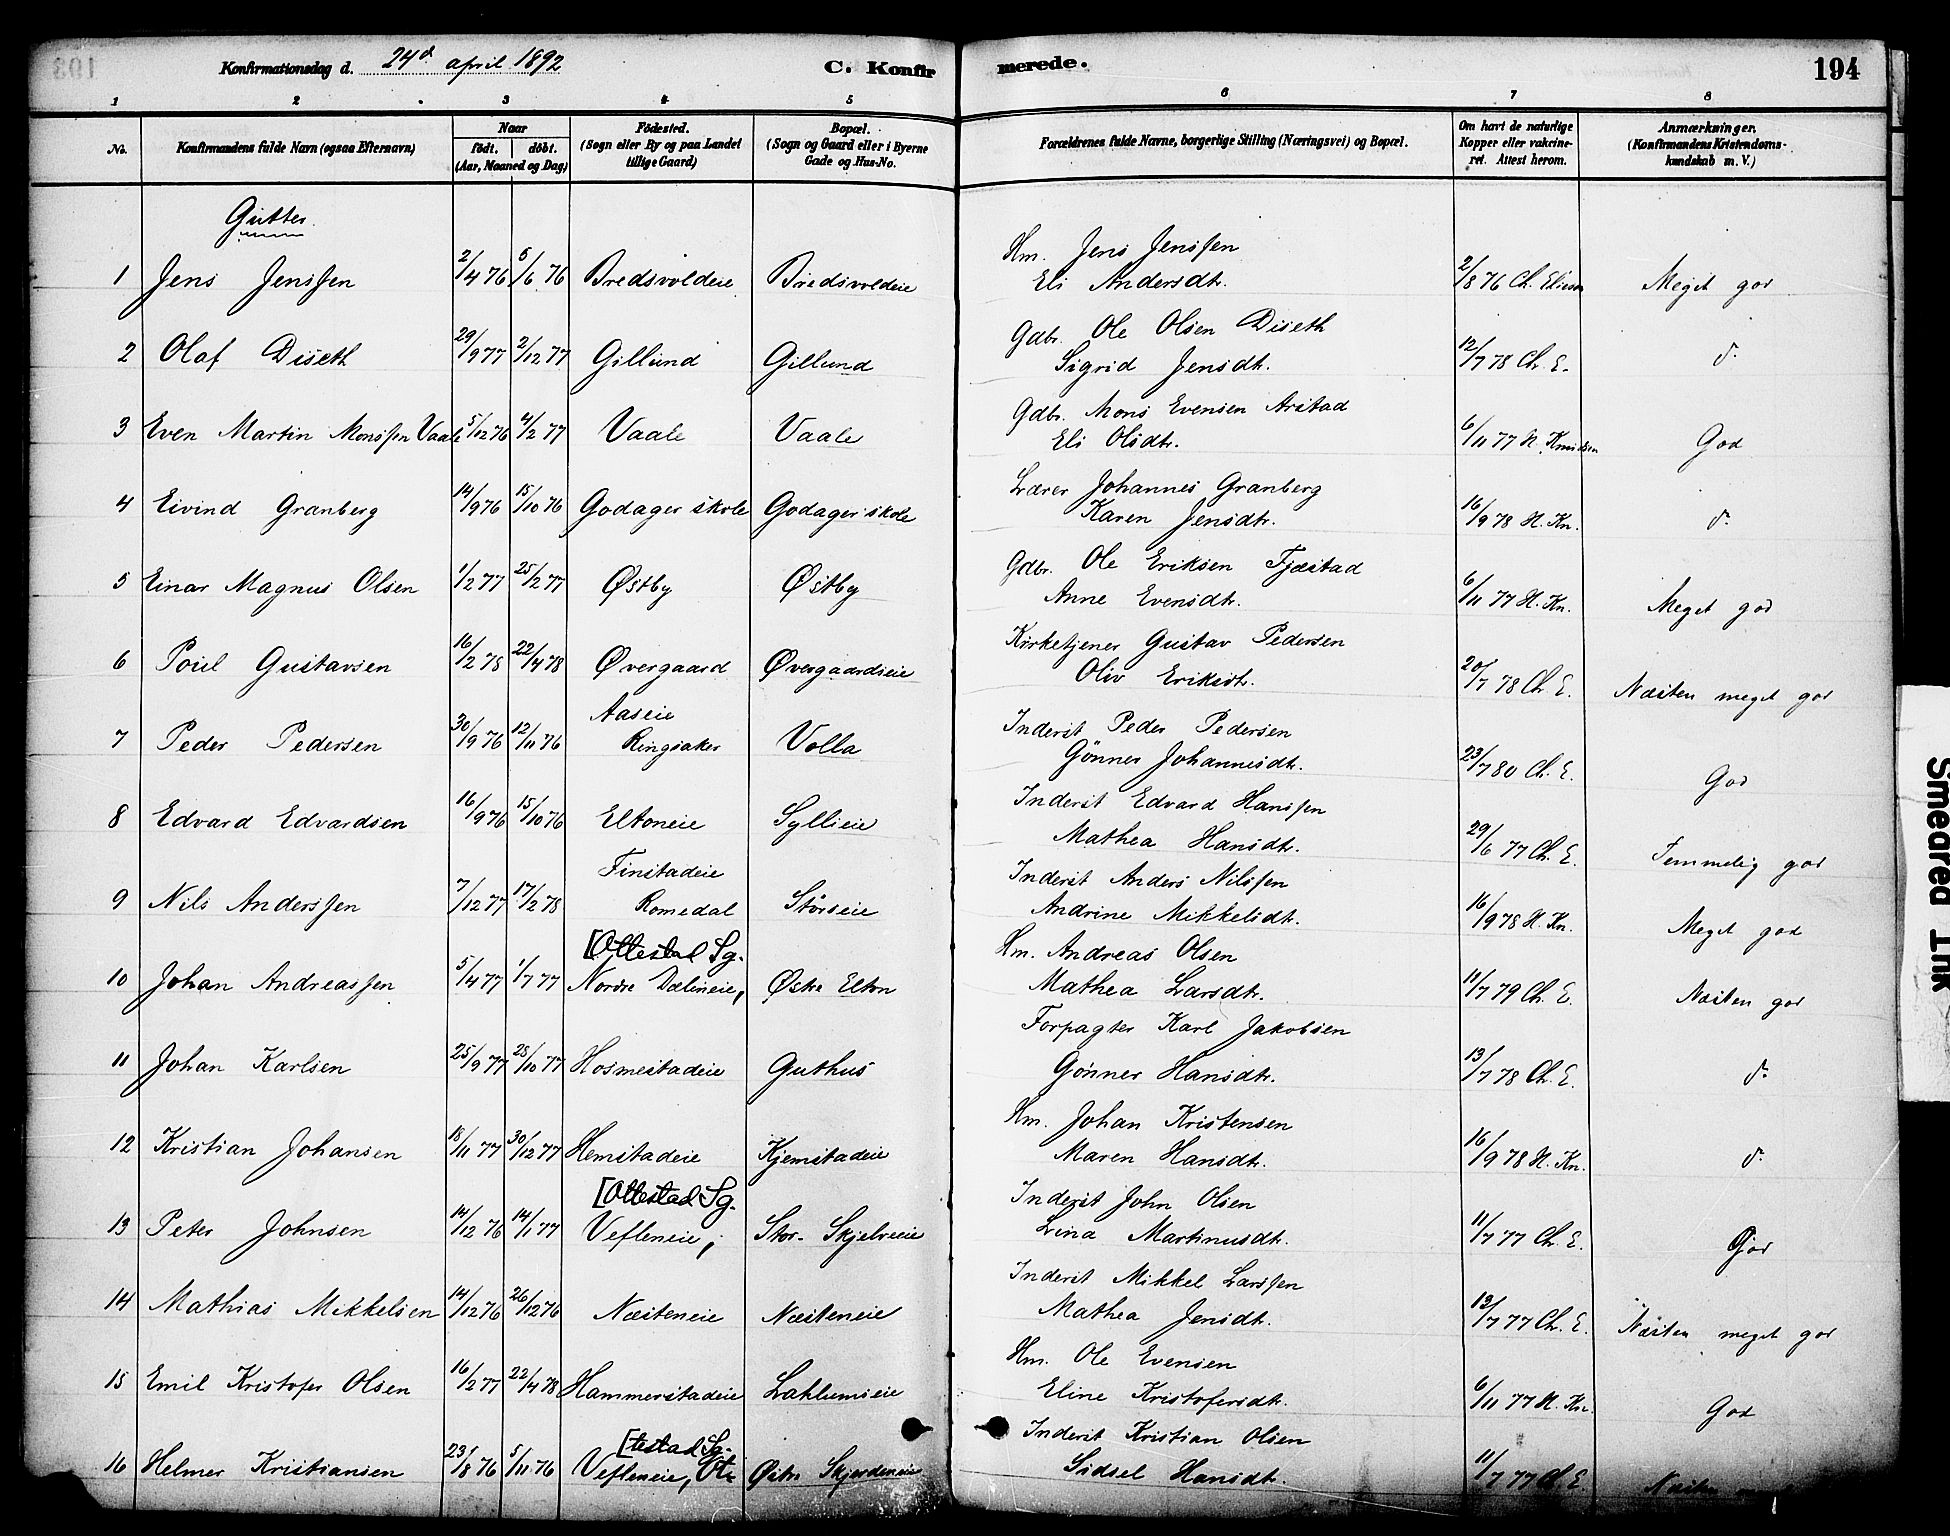 Konfirmationsdag d. 24d april 1892
C. Konfirmerede.
194
1 2 3 4 5 6 7 8
No.
Konfirmandens fulde Navn (ogsaa Efternavn)
Naar
födt. döbt.
(Aar, Maaned og Dag)
Födested.
(Sogn eller By og paa Landet
tillige Gaard)
Bopæl.
(Sogn og Gaard eller i Byerne
Gade og Hus-No.
Forældrenes fulde Navne, borgerlige Stilling (Næringsvei) og Bopæl.
Om havt de naturlige
Kopper eller vakcine-
ret. Attest herom.
Anmærkninger.
(Konfirmandens Kristendoms-
kundskab m. V.)
Gutter
Hm. Jens Jenssen
1 Jens Jenssen 2/4 76 5/6 76 Bredsvoldeie Bredsvoldeie Eli Andersdtr. 2/8 76 Ch. Eliesen Meget god
Gdbr. Ole Olsen Diseth
2 Olaf Diseth 29/9 77 2/12 77 Gillund Gillund Sigrid Jensdtr. 12/7 78 Ch. E. d.
Gdbr. Mons Evensen Arstad
3 Even Martin Monssen Vaale 5/12 76 4/2 77 Vaale Vaale Eli Olsdtr. 6/11 77 H. Knudsen God
Lærer Johannes Granberg
4 Eivind Granberg 14/9 76 15/10 76 Godager skole Godager skole Karen Jensdtr. 16/9 78 H. Kn. d.
Gdbr. Ole Eriksen Fjæstad
5 Einar Magnus Olsen 1/2 77 25/2 77 Østby Østby Anne Evensdtr. 6/11 77 H. Kn. Meget god
Kirketjener Gustav Pedersen
6 Poul Gustavsen 16/2 78 22/4 78 Øvergaard Øvergaardseie Oliv Eriksdtr. 20/7 78 Ch. E. Næsten meget god
Aaseie
Inderst Peder Pedersen
7 Peder Pedersen 30/9 76 12/11 76 Ringsaker Volla Gønner Johannesdtr. 23/7 80 Ch. E. God
Inderst Edvard Hanssen
8 Edvard Edvardsen 16/9 76 15/10 76 Eltoneie Syllieie Mathea Hansdtr. 29/6 77 Ch. E. Temmelig god
Finstadeie
Inderst Anders Nilssen
9 Nils Anderssen 7/12 77 17/2 78 Romedal Størseie Andrine Mikkelsdtr. 16/9 78 H. Kn. Meget god
[Ottestad Sg.
Hm. Andreas Olsen
10 Johan Andreassen 5/4 77 1/7 77 Nordre Dælineie, Østre Elton Mathea Larsdtr. 11/7 79 Ch. E. Næsten god
Forpagter Karl Jakobsen
11 Johan Karlsen 25/9 77 28/10 77 Hosmestadeie Guthus Gønner Hansdtr. 13/7 78 Ch. E. d.
Hm. Johan Kristensen
12 Kristian Johansen 18/11 77 30/12 77 Hemstadeie Kjemstadeie Maren Hansdtr. 16/9 78 H. Kn. d.
[Ottestad Sg.
Inderst John Olsen
13 Peter Johnsen 14/12 76 14/1 77 Vefleneie, Stor-Skjelveeie Lina Martinusdtr. 11/7 77 Ch. E. God
Inderst Mikkel Larssen
14 Mathias Mikkelsen 14/12 76 26/12 76 Næsteneie Næsteneie Mathea Jensdtr. 13/7 77 Ch. E. Næsten meget god
Hm. Ole Evensen
15 Emil Kristofer Olsen 16/2 77 22/4 78 Hammerstadeie Laklumseie Eline Kristofersdtr. 6/11 77 H. Kn. God
[testad Sg.
Inderst Kristian Olsen
16 Helmer Kristiansen 23/8 76 5/11 76 Vefleneie, Ot- Østre Skjerdeneie Sidsel Hansdtr. 11/7 77 Ch. E. Næsten
Smeared Ink